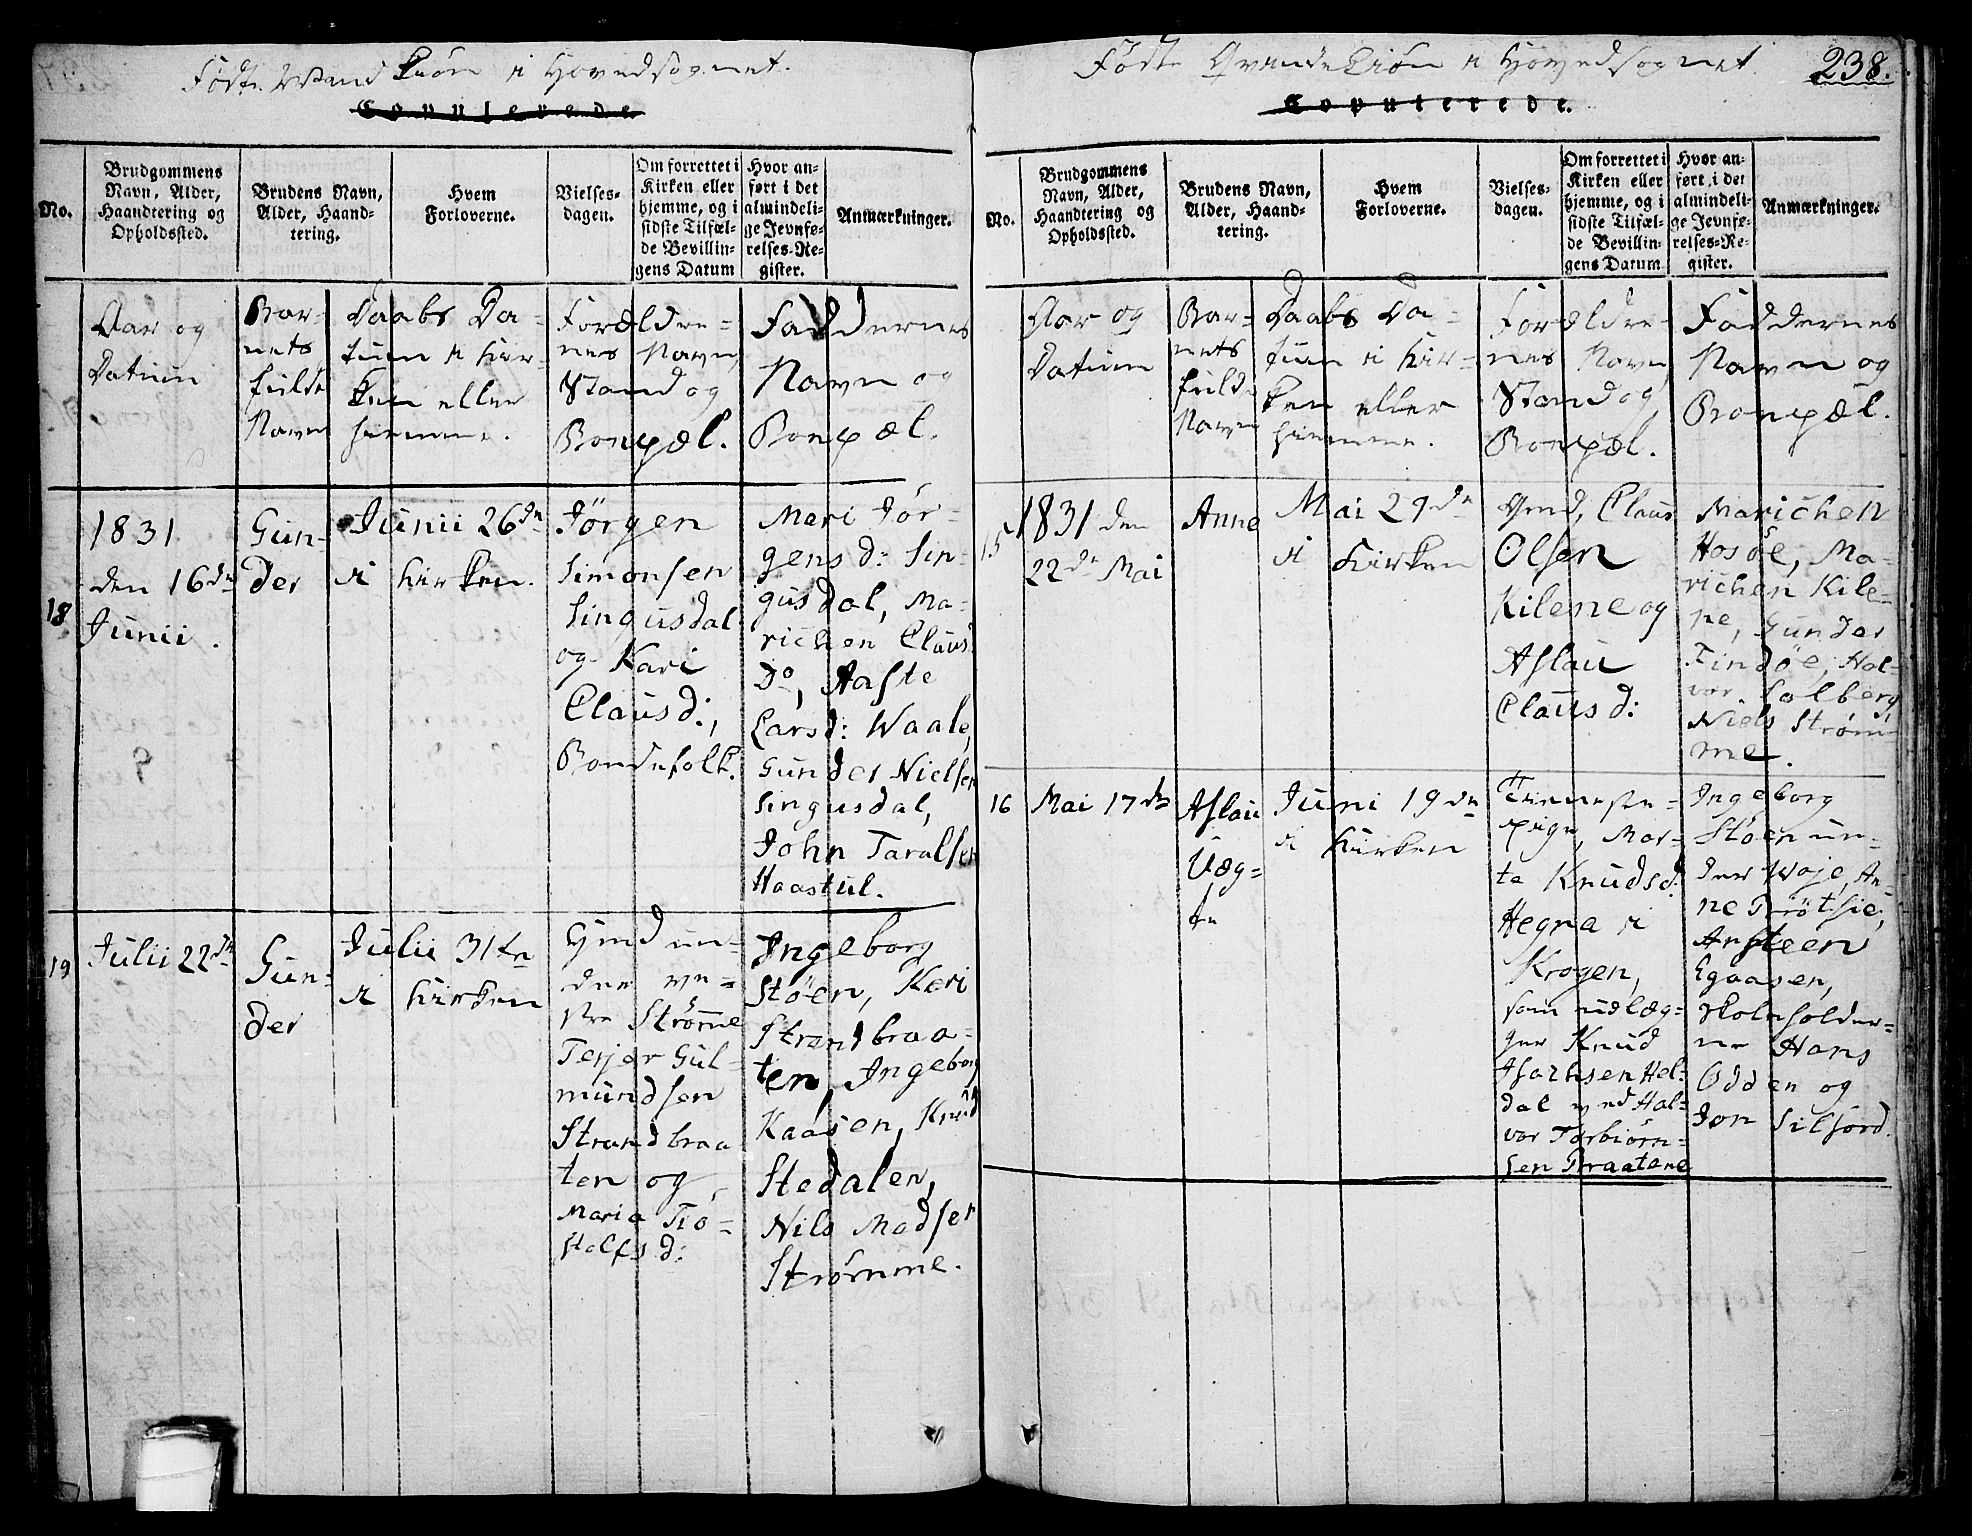 Født Mand Kiøn i Hovedsognet.
Copulerede.
No.
Brudgommens
Navn, Alder,
Haandtering og
Opholdssted.
Brudens Navn,
Alder, Haand-
tering.
Hvem
Forloverne.
Vielses-
dagen.
Om forrettet i
Kirken eller
hjemme, og i
sidste Tilfæl-
de Bevillin-
gens Datum
Hvor an-
ført i det
almindeli-
ge Jevnfø-
relses-Re-
gister.
Anmærkninger.
Aar og
Datum
Bar-
nets
fulde
Navn
Daabs Da-
tum i Kir-
ken eller
hiemme.
Forældre-
nes Navn
Stand og
Bopæl.
Faddernes
Navn og
Bopæl.
18
1831
den 16de
Junii.
Gun-
der
Junii 26de
i Kirken.
Jörgen
Simonsen
Singusdal
og Kari
Clausd:,
Bondefolk.
Mari Jör-
gensd: Sin-
gusdal, Ma-
richen Claus
Do, Aaste
Larsd: Waale,
Gunder Nielsen
Singusdal,
John Taralsen
Haastul.
19
Julii 22de
Gun-
der
Julii 31te
i Kirken
Gmd un-
der ve-
stre Strømme
Terjer Gul-
mundsen
Strandbraa
ten og
Maria Tio-
stolfsd:
Ingeborg
Stöen, Kari
Strandbraa-
ten, Ingeborg
Kaasen, Knud
Stedalen,
Nils Madsen
Strømme.
Født Qvinde Kiøn i Hovedsognet
238.
Copulerede.
No.
Brudgommens
Navn, Alder,
Haandtering og
Opholdssted.
Brudens Navn,
Alder, Haand-
tering.
Hvem
Forloverne.
Vielses-
dagen.
Om forrettet i
Kirken eller
hjemme, og i
sidste Tilfæl-
de Bevillin-
gens Datum
Hvor an-
ført i det
almindeli-
ge Jevnfø-
relses-Re-
gister.
Anmærkninger.
Aar og
Datum
Bar-
nets
fulde
Navn
Daabs Da-
tum i Kir-
ken eller
hiemme.
Forældre-
nes Navn
Stand og
Bopæl.
Faddernes
Navn og
Bopæl.
15
1831 den
22de Mai
Anne
Mai 29de
i Kirken
Gmd, Claus
Olsen
Kilene og
Aslau
Clausd:
Marichen
Hosöe, Ma-
richen Kile-
ne, Gunder
Findöe, Hal-
vor Solberg
Niels Ström-
me.
16
Mai 17de
Aslau
Uæg-
te
Juni 19de
i Kirken
Tieneste-
pige, Mar-
te Knudsd.
Hegna i
Krogen,
som udlæg-
ger Knud
Isachsen Hel-
dal ved Hal-
vor Torbiörn-
sen Braatene
Ingeborg
Stöen un-
der Woje, An-
ne Trötsie,
Ansteen
Egaasen,
Rolnfolder-
ne Hans
Odden og
Jon Siljord.